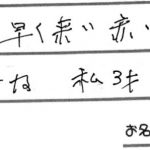 早く来い 赤い
ね 私 3も
お名